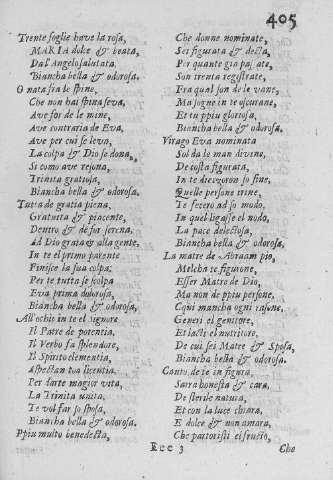 405
Trente foglie have la rosa,
MARIA dolce & beata,
Dal' Angelo salutata,
Biancha bella & odorosa.
O nata fra le spine,
Che non hai spina seva,
Ave for de le mine,
Ave contraria de Eva,
Ave per cui se leva,
La colpa & Dio se dona,
Si como ave resona,
Trinita gratiosa,
Biancha bella & odorosa.
Tutta de gratia piena,
Gratuita & piacente,
Dentro & de fuor serena,
Ad Dio grata & alla gente,
In te el primo parente
Finisce la sua colpa;
Per te tutta se scolpa
Eva prima dolorosa,
Biancha bella & odorosa.
All'ochie in te el signore
Il Patre de potentia,
Il Verbo fa splendore,
Il Spirito clementia,
Aspectan toa licentia.
Per darte magior vita,
La Trinita unita,
Te vol far so sposa,
Biancha bella & odorosa.
Ppiu multo benedecta,
Che donne nominate,
Sei figurata & decta,
Per quante gia passate,
Son trenta registrate,
Fra qual son de le vane,
Ma sogne in te oscurane,
Et tu ppiu gloriosa,
Biancha bella & odorosa.
Virago Eva nominata
Sol da lo man divine,
De costa figurata,
In te discovoron so fine,
Quelle persone trine,
Te fecero ad so modo,
In quel ligasse el nodo,
La pace delectosa,
Biancha bella & odorosa.
La matre de Abraam pio,
Melcha te figurone,
Esser Matre de Dio,
Ma non de ppiu persone,
Cqui mancha ogni rasone,
Generi el genitore,
Et lacti el nutritore,
De cui sei Matre & Sposa,
Biancha bella & odorosa.
Canto de te in figura,
Sarra honesta & cara,
De sterile natura,
Et con la luce chiara,
E dolce & non amara,
Che partoristi el frucio,
Eee 3
Che